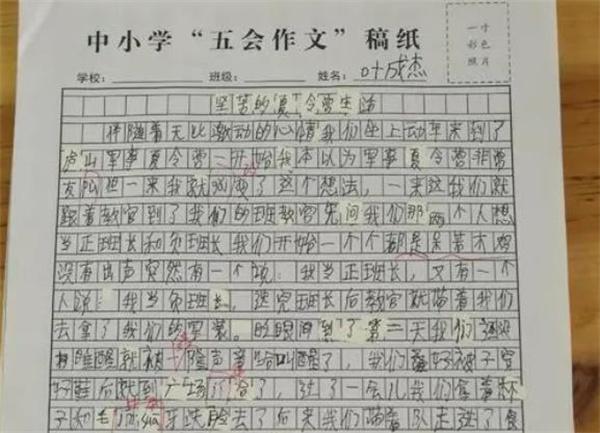 中小学“五会作文”稿纸
一寸
彩色
照片
学校： 班级： 姓名：叶成杰
坚苦的夏令营生活
伴随着无比激动的心情我们坐上动车来到了
庐山军事夏令营一开始我本以为军事夏令营非常
但一来我就了这个想法，一来这我们就
跟着教官到了我们的班教官先问我们那两个人想
当正班长和负班长我们开始一个个都是呆若木鸡
没有出声突然有一个说：我当正班长，又有一个
人说：我当负班长，选完班长后教官就带着我们
去拿了我们的军装。时间到了第二天我们
睡醒就被声音叫醒了，我们被子穿
好鞋后就到广场了，过了一会儿我们拿着杯
子和毛牙洗脸去了后来我们带着队走进了食